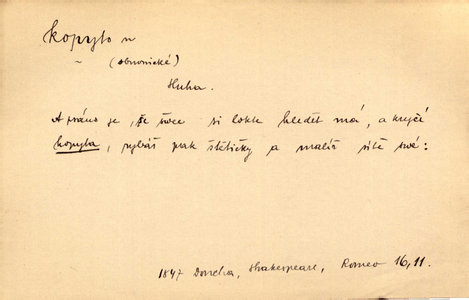 kopyto n
~ (obuvnické)
Huha.
A psáno je, že švec si lokte hledět má, a krejčí
kopyta, rybář pak štětičky a malíř sítě své:
1847 Doucha, Shakespeare, Romeo 16,11.